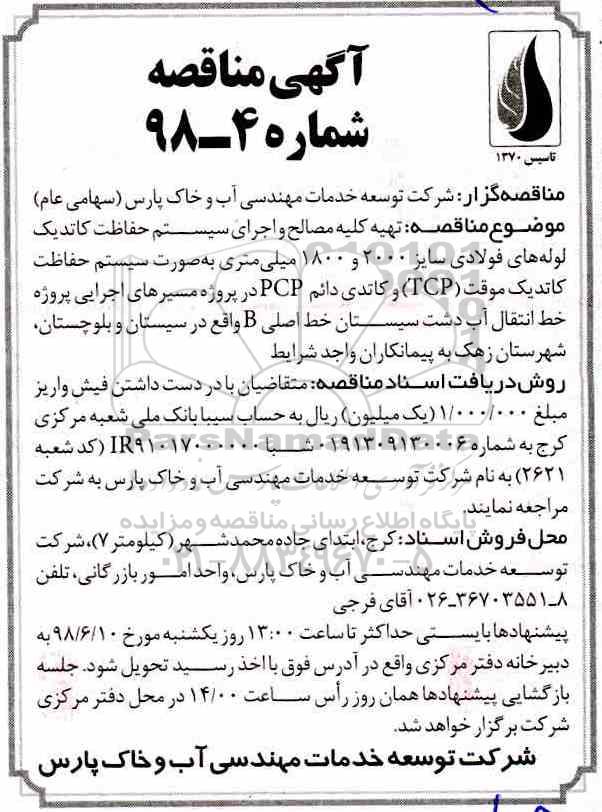 آگهی مناقصه
شماره ۴ــ۹۸
تاسیس ۱۳۷۰
مناقصه‌گزار: شرکت توسعه خدمات مهندسی آب و خاک پارس (سهامی عام)
موضوع مناقصه: تهیه کلیه مصالح و اجرای سیستم حفاظت کاتدیک
لوله‌های فولادی سایز ۲۰۰۰ و ۱۸۰۰ میلی‌متری به‌صورت سیستم حفاظت
کاتدیک موقت (TCP) و کاتدی دائم PCP در پروژه مسیرهای اجرایی پروژه
خط انتقال آب دشت سیستان خط اصلی B واقع در سیستان و بلوچستان،
شهرستان زهک به پیمانکاران واجد شرایط
روش دریافت اسناد مناقصه: متقاضیان با در دست داشتن فیش واریز
مبلغ ۱/۰۰۰/۰۰۰ (یک میلیون) ریال به حساب سیبا بانک ملی شعبه مرکزی
کرج به شماره ۰۱۹۱۳۰۹۱۳۰۰۰۶ شبا IR۹۱۰۱۷۰۰۰۰۰۰ (کد شعبه
۲۶۲۱) به نام شرکت توسعه خدمات مهندسی آب و خاک پارس به شرکت
مراجعه نمایند.
محل فروش اسناد: کرج، ابتدای جاده محمدشهر (کیلومتر ۷)، شرکت
توسعه خدمات مهندسی آب و خاک پارس، واحد امور بازرگانی، تلفن
۸ــ۳۶۷۰۳۵۵۱ــ۰۲۶ آقای فرجی
پیشنهادها بایستی حداکثر تا ساعت ۱۳:۰۰ روز یکشنبه مورخ ۹۸/۶/۱۰ به
دبیرخانه دفتر مرکزی واقع در آدرس فوق با اخذ رسید تحویل شود. جلسه
بازگشایی پیشنهادها همان روز رأس ساعت ۱۴/۰۰ در محل دفتر مرکزی
شرکت برگزار خواهد شد.
شرکت توسعه خدمات مهندسی آب و خاک پارس
ParsNamadData
پایگاه اطلاع رسانی مناقصه و مزایده
۰۲۱-۸۸۳۴۹۶۷۰-۵